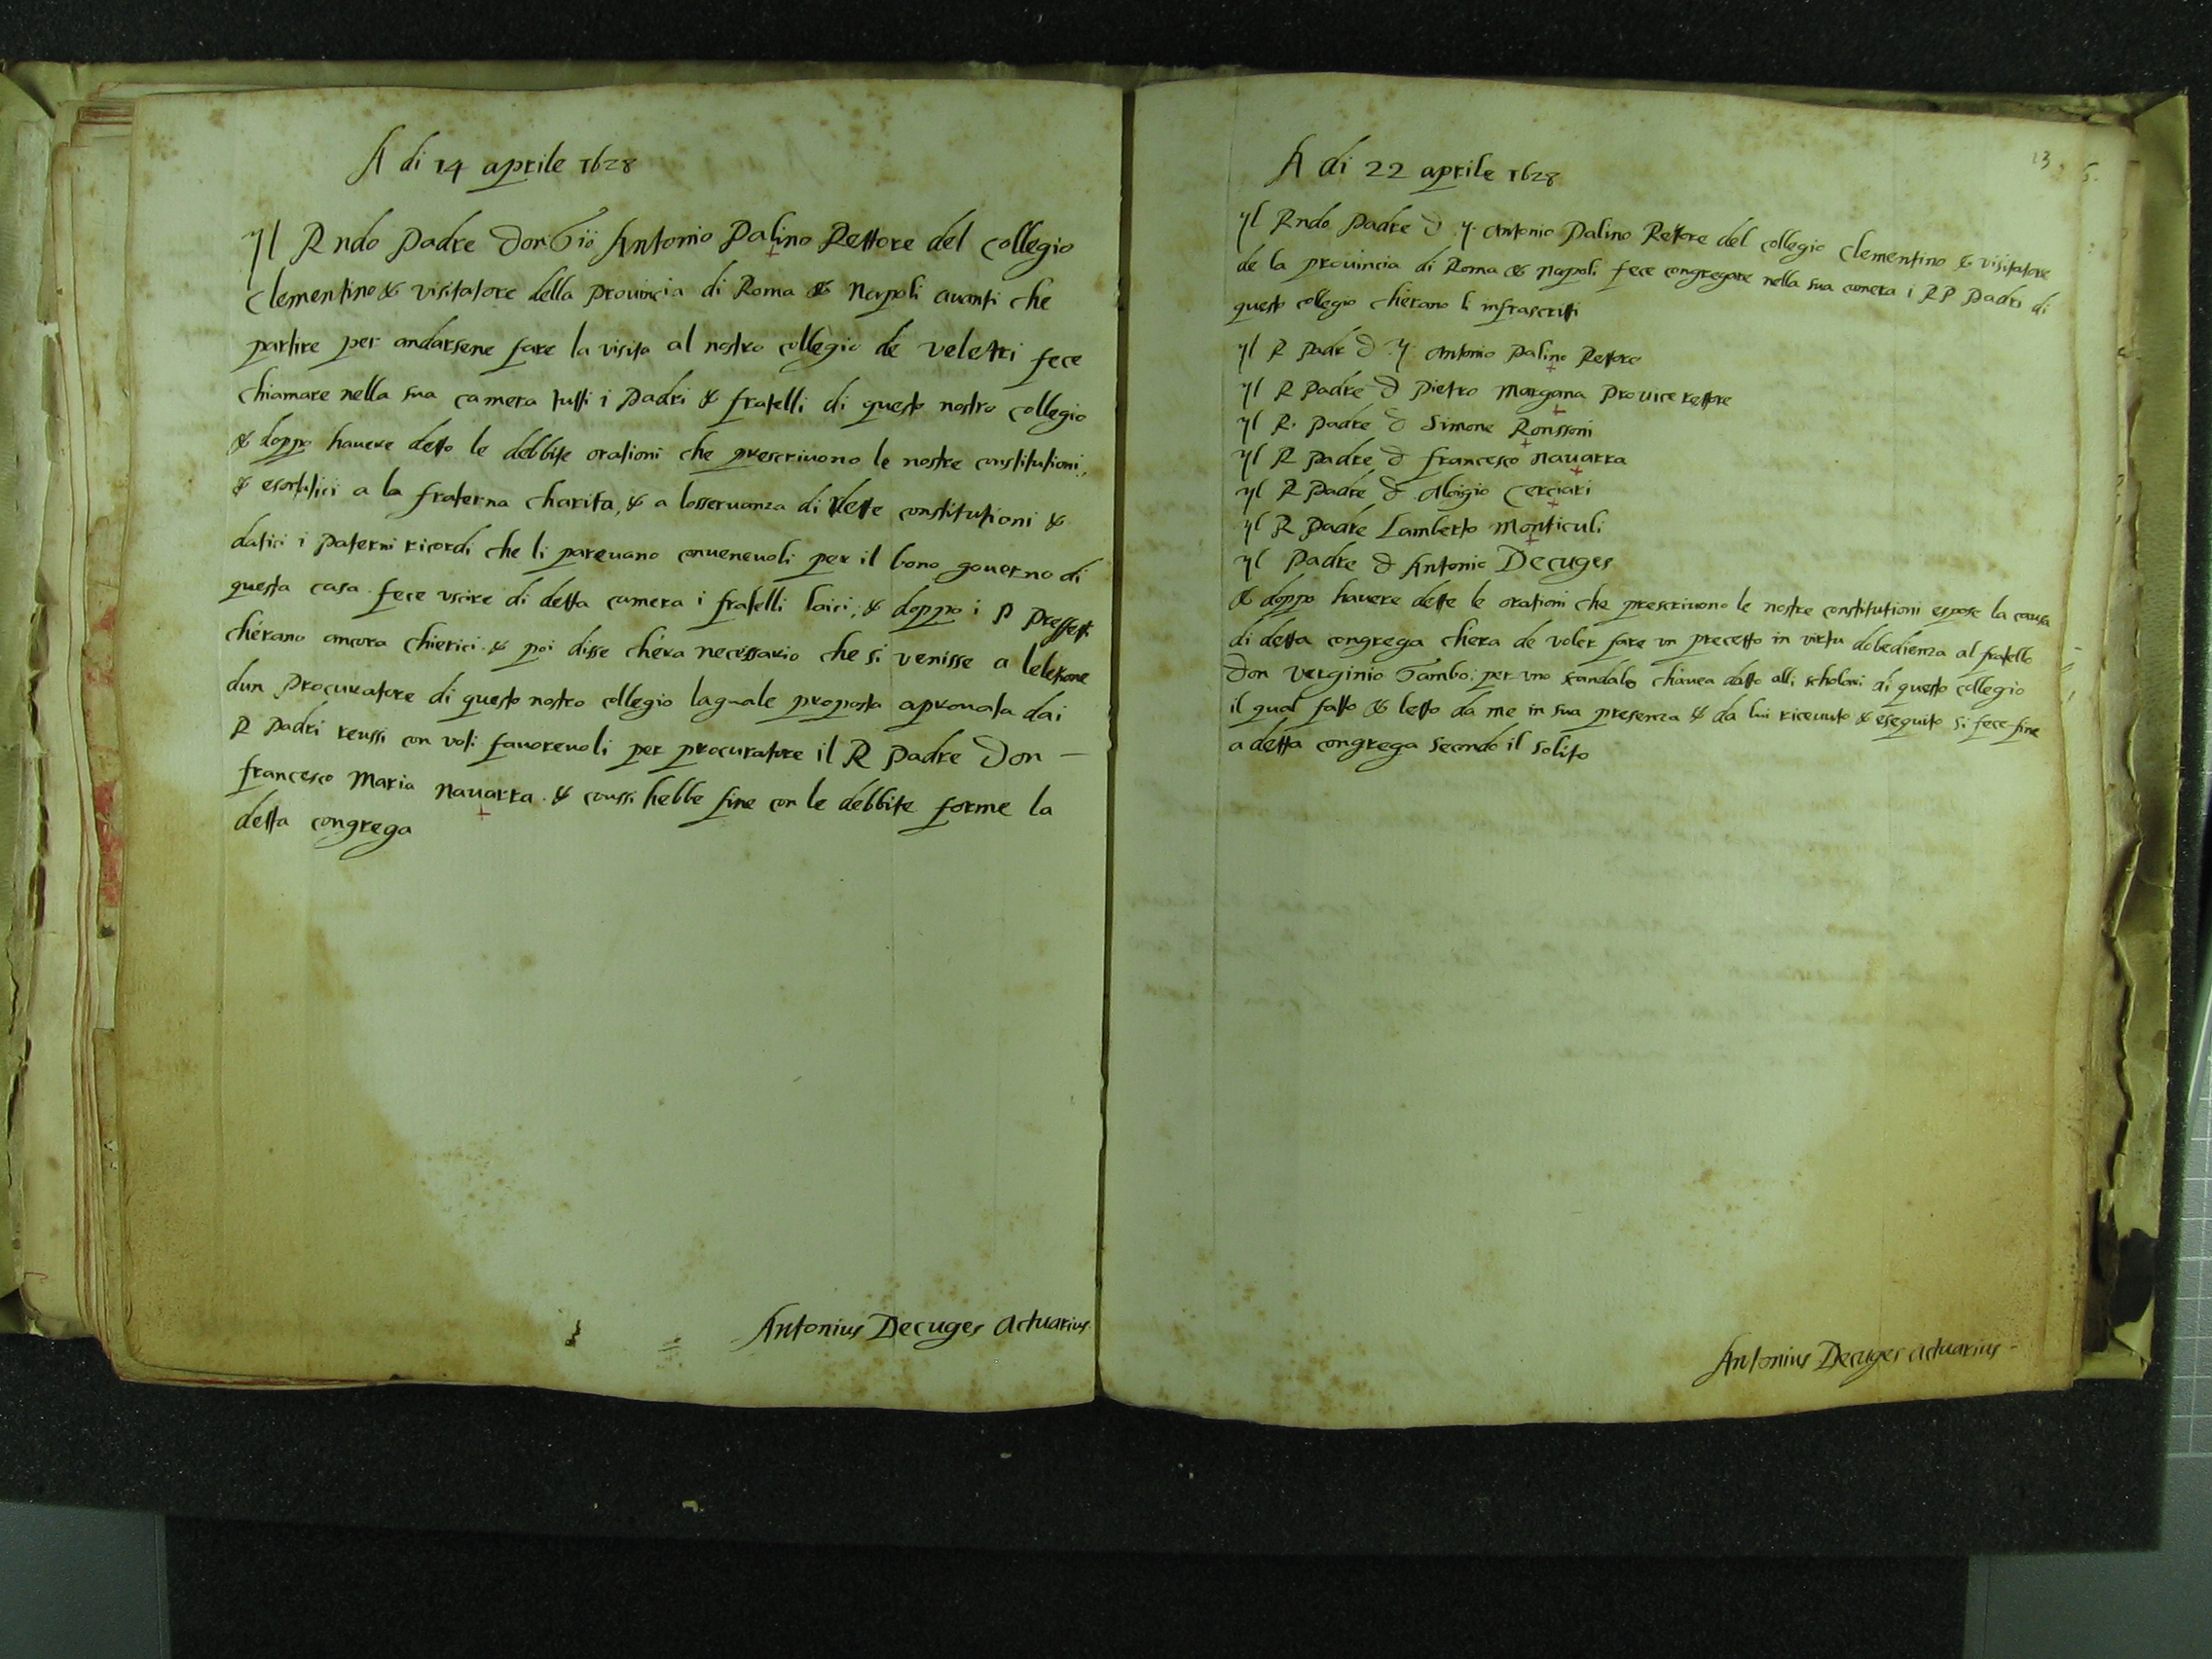 A di 14 aprile 1628
Yl Rndo Padre Don Gio Antonio Palino Rettore del collegio
Clementino & visitatore della Provincia di Roma & Napoli avanti che
partire per andarsene fare la visita al nostro collegio de veletri fece
chiamare nella sua camera tutti i Padri & fratelli di questo nostro collegio
& doppo havere detto le debbite orationi che prescrivono le nostre constitutioni,
& esortatici a la fraterna charita, & a losservanza di dette constitutioni &
datici i Paterni ricordi che li parevano convenevoli per il bono governo di
questa casa fece uscire di detta camera i fratelli laici; & doppo i P Preffetti
chérano ancora chierici & poi disse chéra necéssario che si venisse a leletione
dun Procuratore di questo nostro collegio laquale proposta aprovata dai
R Padri reussi con voti favorevoli per procuratore il R Padre Don —
francesco Maria Navarra. & coussi hebbe fine con le debbite forme la
detta congrega
Antonius Decuges Actuarius.
13
A di 22 aprile 1628
Yl Rndo Padre D. Y. Antonio Palino Rettore del collegio Clementino & visitatore
de la provincia di Roma & Napoli fece congregare nella sua camera i RP Padri di
questo collegio chérano li infrascritti
Yl R Padr D. Y. Antonio Palino Rettore
Yl R Padre D Pietro Margana Provice rettore
Yl R. Padre D Simone Ronssoni
Yl R Padre D francesco Navarra
Yl R Padre D Aloigio Cerciari
Yl R Padre Lamberto Monticuli
Yl Padre D Antonio Decuges
& doppo havere dette le orationi che prescrivono le nostre constitutioni espose la causa
di detta congrega chéra de voler fare un precetto in virtu dobedienza al fratello
Don Verginio Tambo: per uno scandalo chavea datto alli scholari di questo collegio
il qual fatto & letto da me in sua presenza & da lui ricevuto & eseguito si fece fine
a detta congrega secondo il solito
Antonius Decuges actuarius -